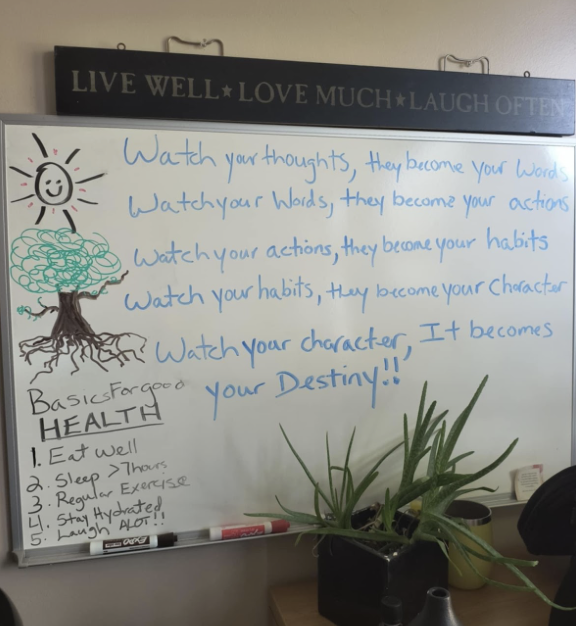 LIVE WELL★LOVE MUCH★LAUGH OFTEN
Watch your thoughts, they become your Words
Watch your Words, they become your actions
Watch your actions, they become your habits
Watch your habits, they become your Character
Watch your character, It becomes
your Destiny!!
Basics For good
HEALTH
1. Eat Well
2. Sleep >7hours
3. Regular Exercise
4. Stay Hydrated
5. Laugh ALOT!!
EXPO